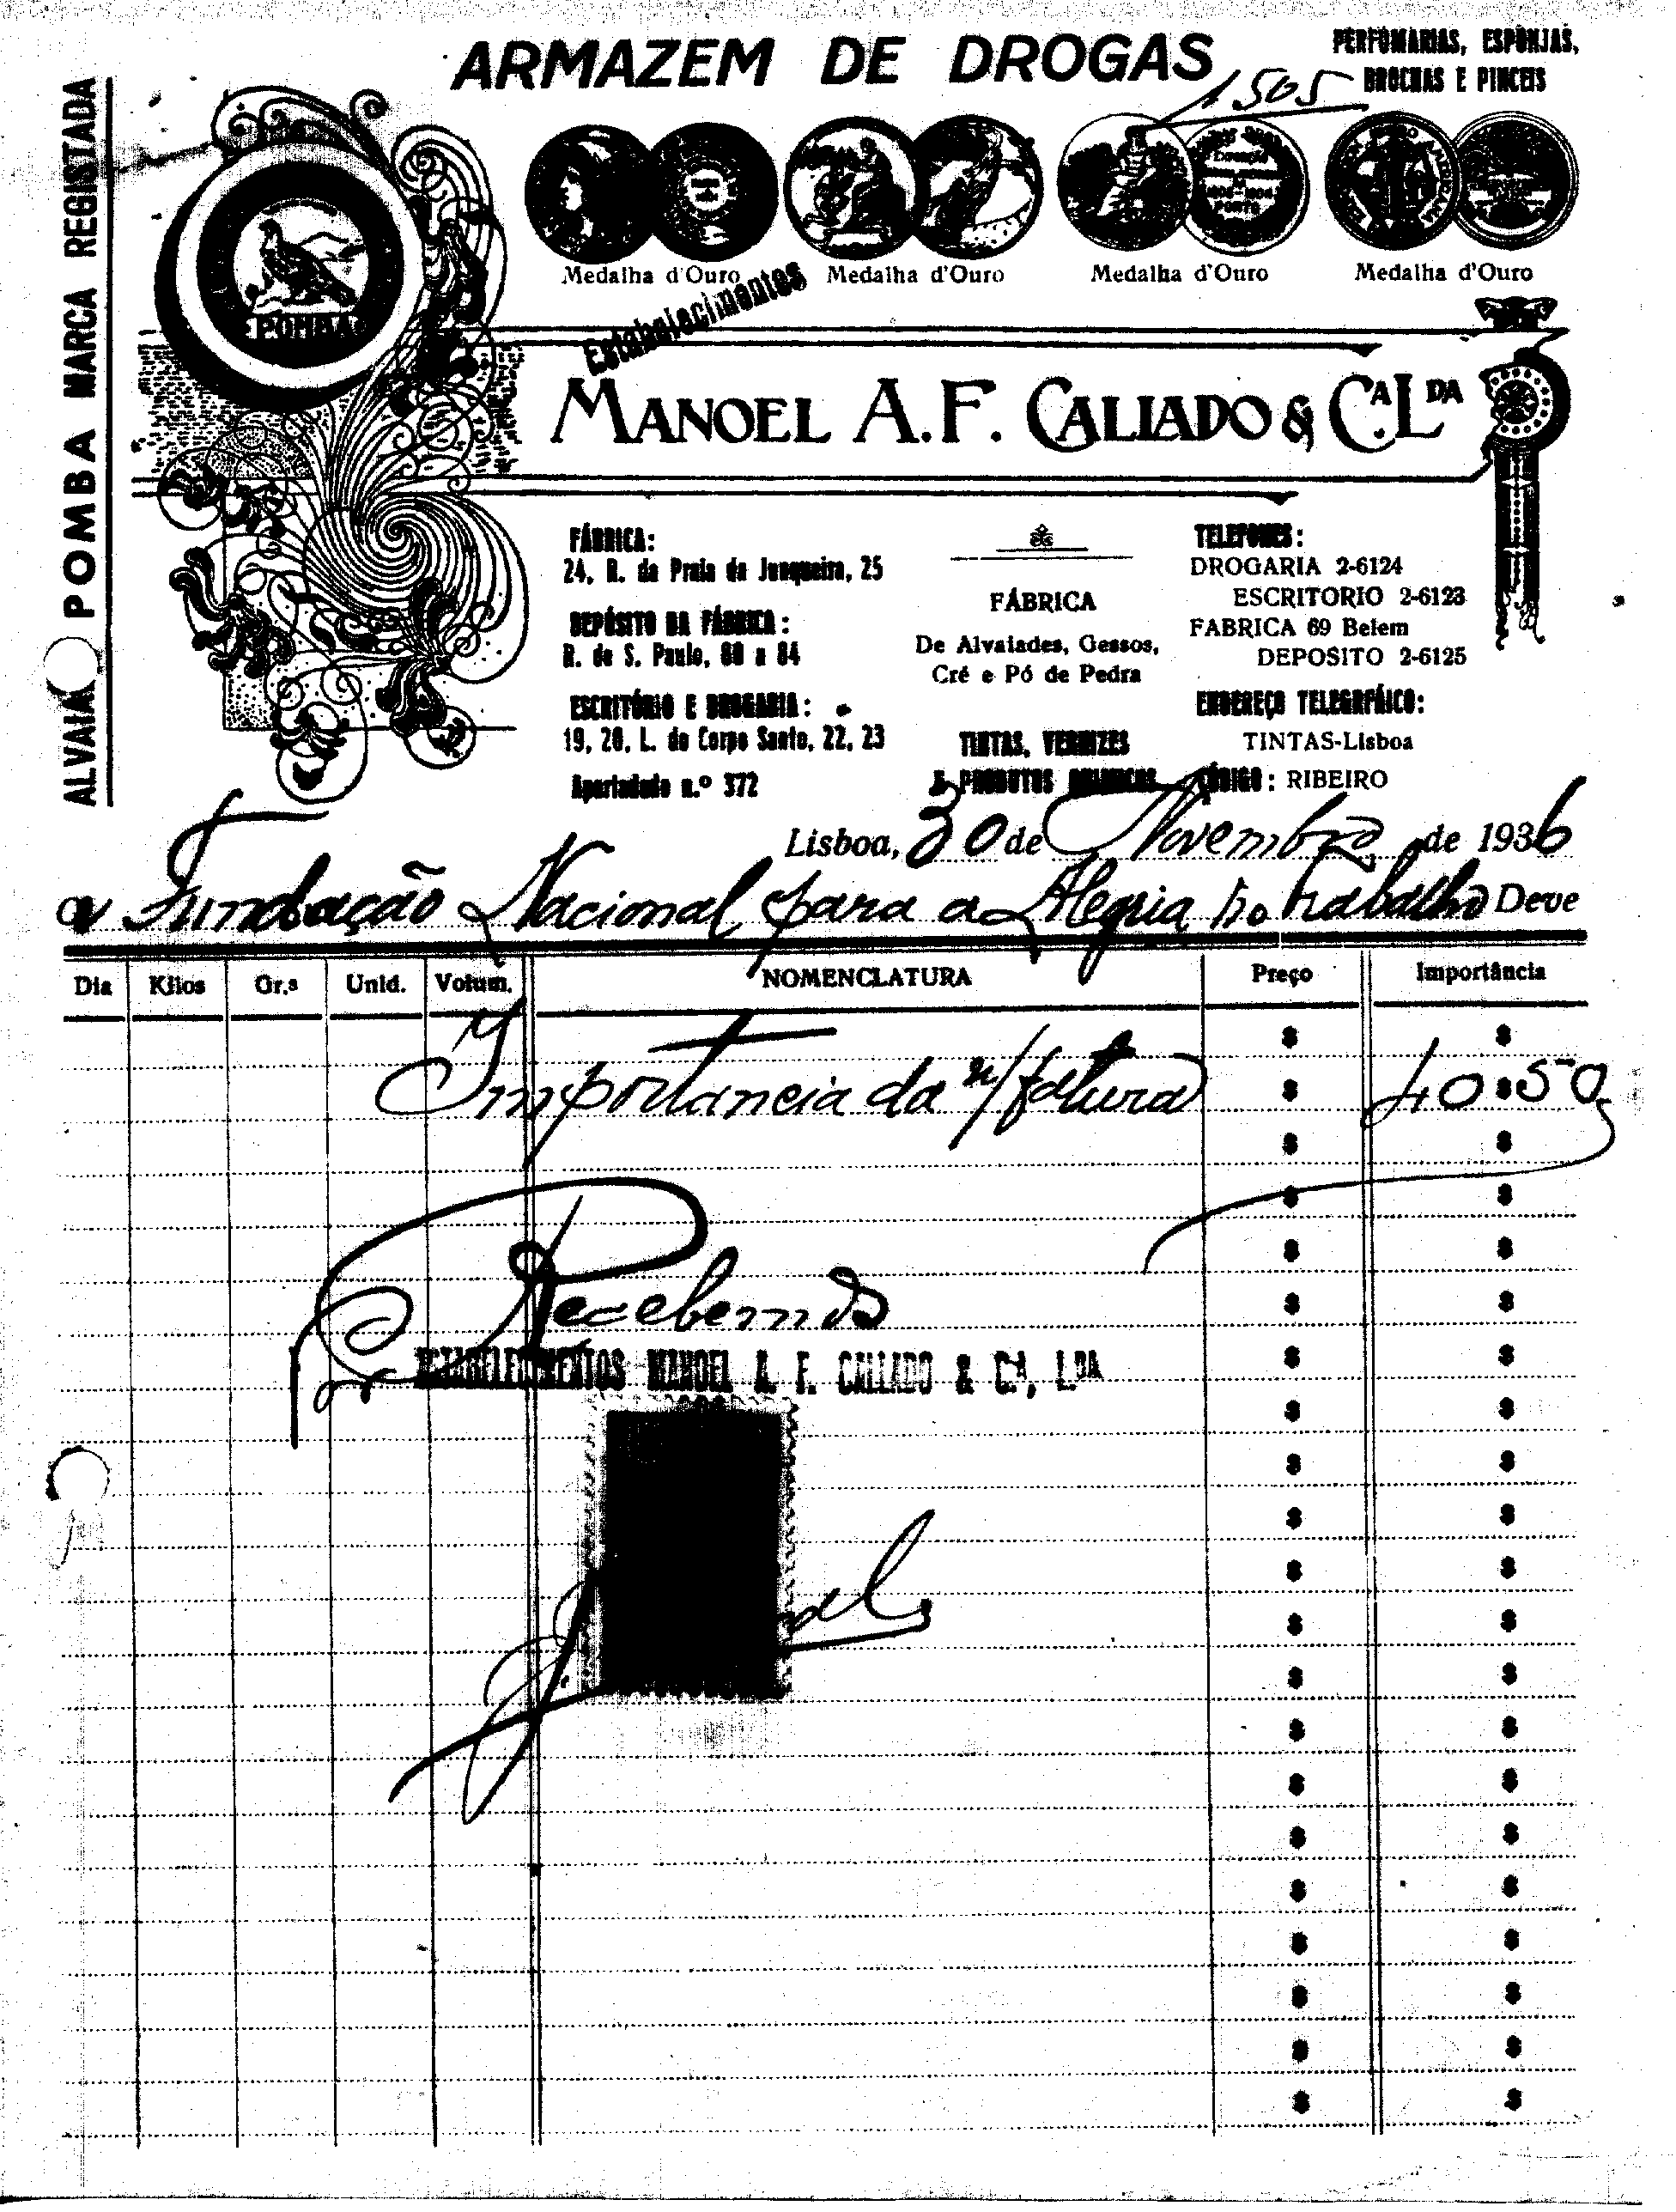 ARMAZEM DE DROGAS
PERFUMARIAS, ESPONJAS,
BROCHAS E PINCEIS
1505
ALVAIA POMBA MARCA REGISTADA
POMBA
Medalha d'Ouro Medalha d'Ouro Medalha d'Ouro Medalha d'Ouro
Estabelecimentos
MANOEL A. F. CALLADO & C.A L.DA
FÁBRICA:
24, R. da Praia da Junqueira, 25
DEPÓSITO DA FÁBRICA:
R. de S. Paulo, 80 a 84
ESCRITÓRIO E DROGARIA:
19, 20, L. do Corpo Santo, 22, 23
Apartadado n.º 372
FÁBRICA
De Alvaiades, Gessos,
Cré e Pó de Pedra
TINTAS, VERNIZES
E PRODUTOS QUIMICOS
TELEFONES:
DROGARIA 2-6124
ESCRITORIO 2-6123
FABRICA 69 Belem
DEPOSITO 2-6125
ENDEREÇO TELEGRÁFICO:
TINTAS-Lisboa
CÓDIGO: RIBEIRO
Lisboa, 30 de Novembro de 1936
a Fundação Nacional para a Alegria no trabalho Deve
Dia Kilos Gr.s Unid. Volum. NOMENCLATURA Preço Importância
Importancia da n/ fatura 40$50
Recebemos
ESTABELECIMENTOS MANOEL A. F. CALLADO & C.A, L.DA